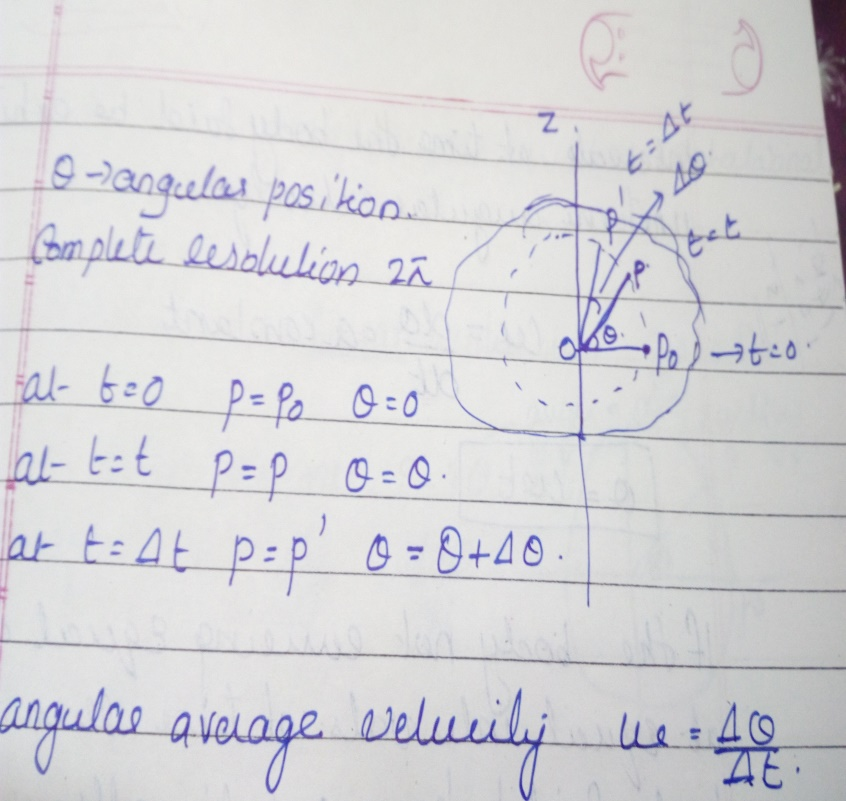 Z
t = Δt
Δθ
θ → angular position.
P'
t = t
Complete resolution 2π
P
O θ P₀ → t = 0.
at t = 0 P = P₀ θ = 0
at t = t P = P θ = θ.
at t = Δt P = P' θ = θ + Δθ.
angular average velocity ω = Δθ
Δt.